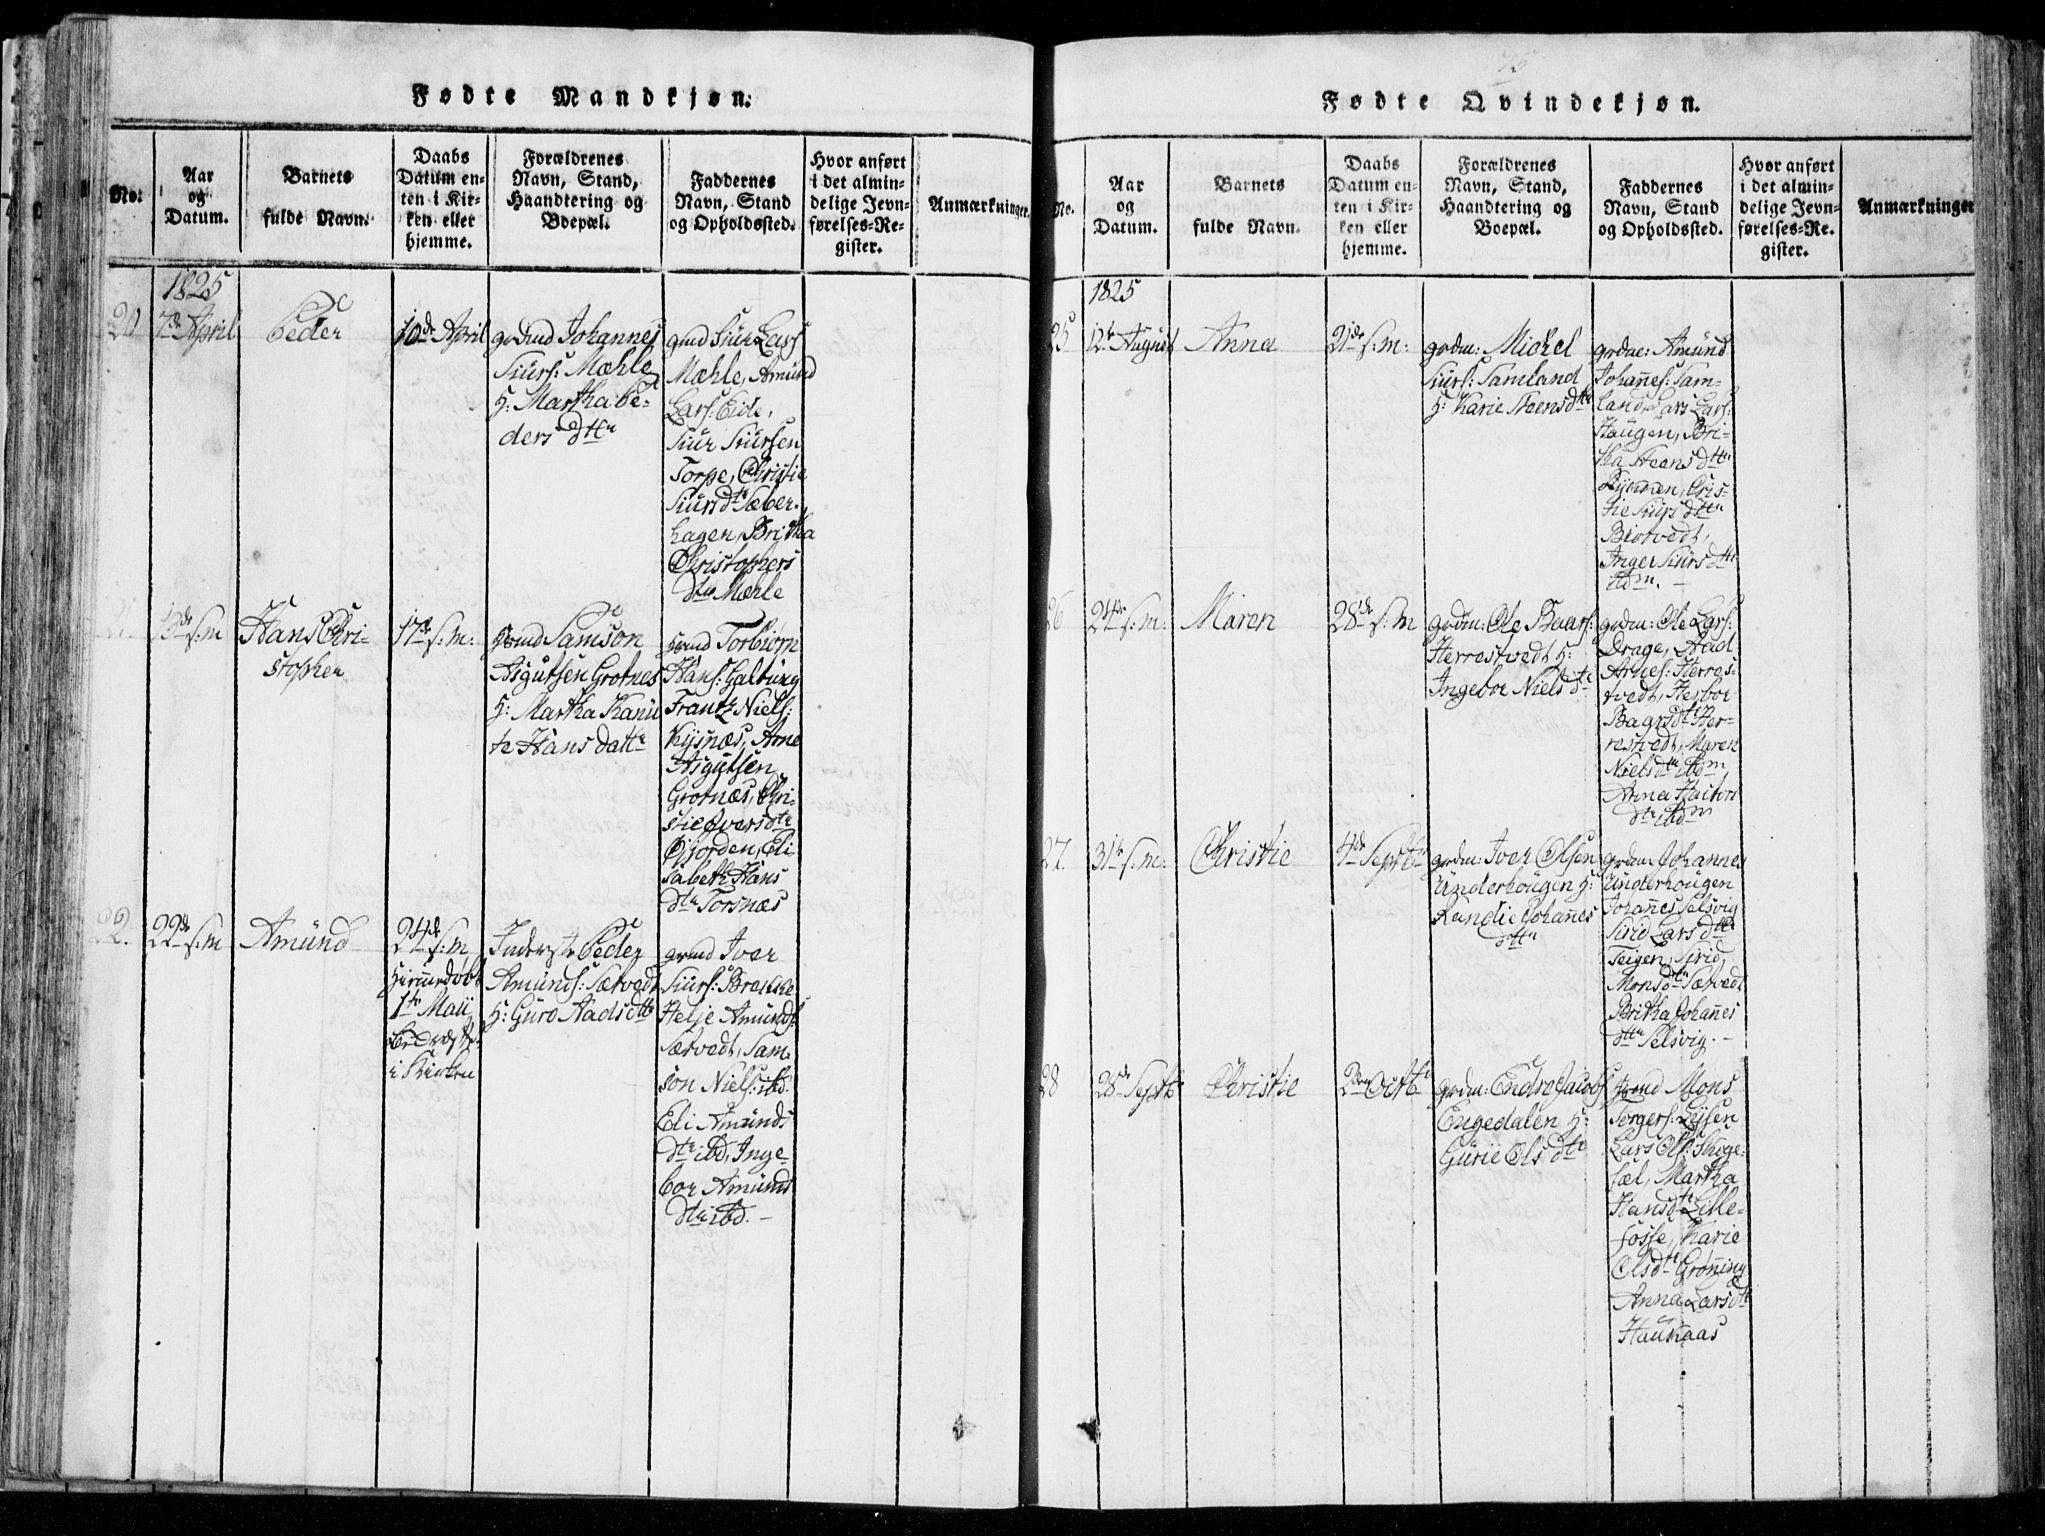 Fødte Mandkjøn.
No.
Aar
og
Datum.
Barnets
fulde Navn.
Daabs
Datum en-
ten i Kir-
ken eller
hjemme.
Forældrenes
Navn, Stand,
Haandtering og
Boepæl.
Faddernes
Navn, Stand
og Opholdssted.
Hvor anført
i det almin-
delige Jevn-
førelses-Re-
gister.
Anmærkninger.
1825
20
7de April
Peder
10de April
grdmd Johannes
Siurs: Mæhle
H: Martha Pe-
ders dttr
gmd Siur Lars
Mæhle, Amünd
Lars: Eide,
Siur Siursen
Torpe, Christie
Siursdtr Sæber-
hagen, Britha
Christophers
dtr Mæhle
21.
13de s: m
Hans Chri-
stopher
17de s: m:
grmd Samson
Asgutsen Grotnes
H: Martha Kanu
te Hans datt
grmd Torbiørn
Hans: Galtung
Frantz Niels:
Kysnæs, Arne
Asgutsen
Grotnæs, Chri-
stie Iversdtr
Øijorden, Eli
sabeth Hans
dtr Torsnæs
22.
22de s: m
Amünd
24de s: m
hiemedøbt
1te Maii
i Kirken
Inderst Peder
Amünds: Sætvedt
H: Guro Aadsdtr
grmd Iver
Siurs: Brække
Helje Amünds:
Sætvedt, Sam-
son Niels: ibd.
Eli Amünds
dtr ibd, Inge-
bor Amünds
dtr ibd. –
Fødte Qvindekjøn.
No.
Aar
og
Datum.
Barnets
fulde Navn.
Daabs
Datum en-
ten i Kir-
ken eller
hjemme.
Forældrenes
Navn, Stand,
Haandtering og
Boepæl.
Faddernes
Navn, Stand
og Opholdssted.
Hvor anført
i det almin-
delige Jevn-
førelses-Re-
gister.
Anmærkninger
1825
25
12te August
Anna
21de s: m:
grdm: Mickel
Siurs: Samland
H: Karie Steensdtr
grdm: Amünd
Johañes: Sam-
land, Lars Lars:
Haugen, Bri-
tha Steensdtr
Rykken, Cris-
tie Siursdtr
Biotvedt,
Inger Siursdtr
ibdm. –
26
24de s: m:
Maren
28de s: m
grdm: Ole Baars:
Herrestvedt H:
Ingebor Nielsdtr
grdm: Ole Lars:
Drage, Aad
Arnes: Herres-
tvedt, Herbor
Baarsdtr Her-
restvedt, Maren
Nielsdtr ibdm
Anna Haldors
dtr ibdm
27.
31te s: m:
Christie
4de Septbr
grdm: Iver Olsen
Underhougen H:
Randie Johañes
dttr
grdm: Johannes
Underhougen
Johañes Selsvig
Sirid Larsdtr
Teigen, Sirid
Monsdtr Sætvedt
Britha Johañes
dttr Selsvig. –
28
28de Septbr
Christie
2den Octbr
grdm: Endre Jacobs
Engedalen H:
Gurie Olsdtr
grmd Mons
Torgers: Lysen
Lars Ols: Skoge-
sæl, Martha
Hansdtr Lille-
fosse, Karie
Olsdtr Grøning
Anna Larsdtr
Haukaas